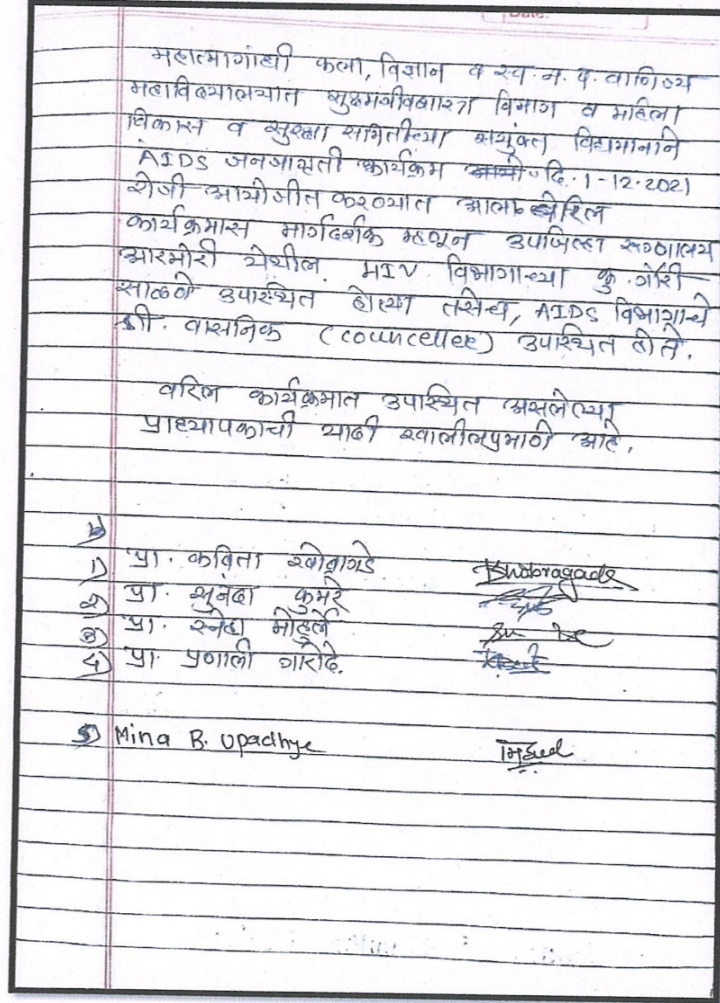 Date:
महात्मागांधी कला, विज्ञान व स्व. न. प. वाणिज्य
महाविद्यालयात सुक्ष्मजीवशास्त्र विभाग व महिला
विकास व सुरक्षा समितीच्या संयुक्त विद्यमानाने
AIDS जनजागृती कार्यक्रम दि. 1-12-2021
रोजी आयोजीत करण्यात आला. वरिल
कार्यक्रमास मार्गदर्शक म्हणून उपजिल्हा रुग्णालय
आरमोरी येथील. HIV विभागाच्या कु. गौरी
साळवे उपस्थित होत्या तसेच, AIDS विभागाचे
श्री. वासनिक (councellee) उपस्थित होते.
वरिल कार्यक्रमात उपस्थित असलेल्या
प्राध्यापकाची यादी खालीलप्रमाणे आहे.
1) प्रा. कविता खोब्रागडे Khobragade
२) प्रा. सुनंदा कुमरे
३) प्रा. स्नेहा मोहुर्ले
4) प्रा. प्रणाली गारोदे.
5) Mina B. Upadhye